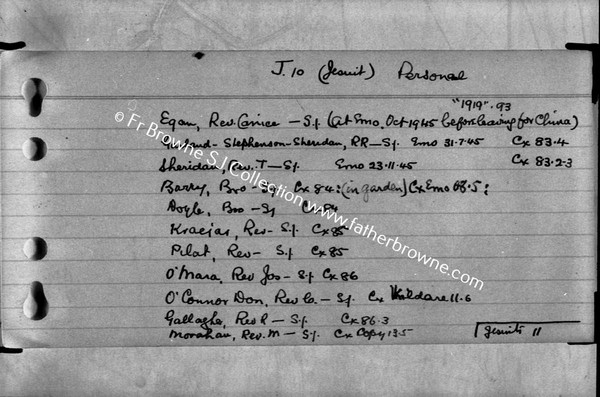 J.10 (Jesuit) Personal
"1919".93
Egan, Rev. Canice - S.J. (At Emo, Oct 1945 before leaving for China)
- Stephenson - Sheridan, RR - S.J. Emo 31.7.45 Cx 83.4
Sheridan, Rev. T - S.J. Emo 23.11.45 Cx 83.2-3
Barry, Bro - SJ Cx 84: (in garden) Cx Emo 68.5:
Doyle, Bro - SJ Cx 84
Kraejar, Rev - S.J. Cx 85
Pilat, Rev - S.J. Cx 85
O'Mara, Rev Jos - S.J Cx 86
O'Connor Don, Rev C. - S.J. Cx Kildare 11.6
Gallagher, Rev R - S.J. Cx 86.3
Morahan, Rev. M - S.J. Cx Copy 13.5
Jesuits 11
© Fr Browne S.J. Collection www.fatherbrowne.com